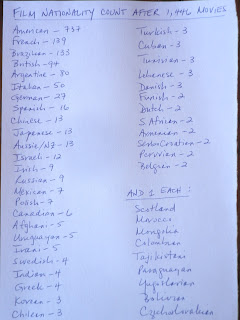 FILM NATIONALITY COUNT AFTER 1,446 MOVIES
American - 737
French - 139
Brazilian - 133
British - 94
Argentine - 80
Italian - 50
German - 27
Spanish - 16
Chinese - 13
Japanese - 13
Aussie/NZ - 13
Israeli - 12
Irish - 9
Russian - 9
Mexican - 7
Polish - 7
Canadian - 6
Afghani - 5
Uruguayan - 5
Irani - 5
Swedish - 4
Indian - 4
Greek - 4
Korean - 3
Chilean - 3
Turkish - 3
Cuban - 3
Tunisian - 3
Lebanese - 3
Danish - 3
Finnish - 2
Dutch - 2
S. African - 2
Armenian - 2
Serbo Croatian - 2
Peruvian - 2
Belgian - 2
AND 1 EACH:
Scotland
Morocco
Mongolia
Colombian
Tajikistani
Paraguayan
Yugoslavian
Bolivian
Czechoslovakian